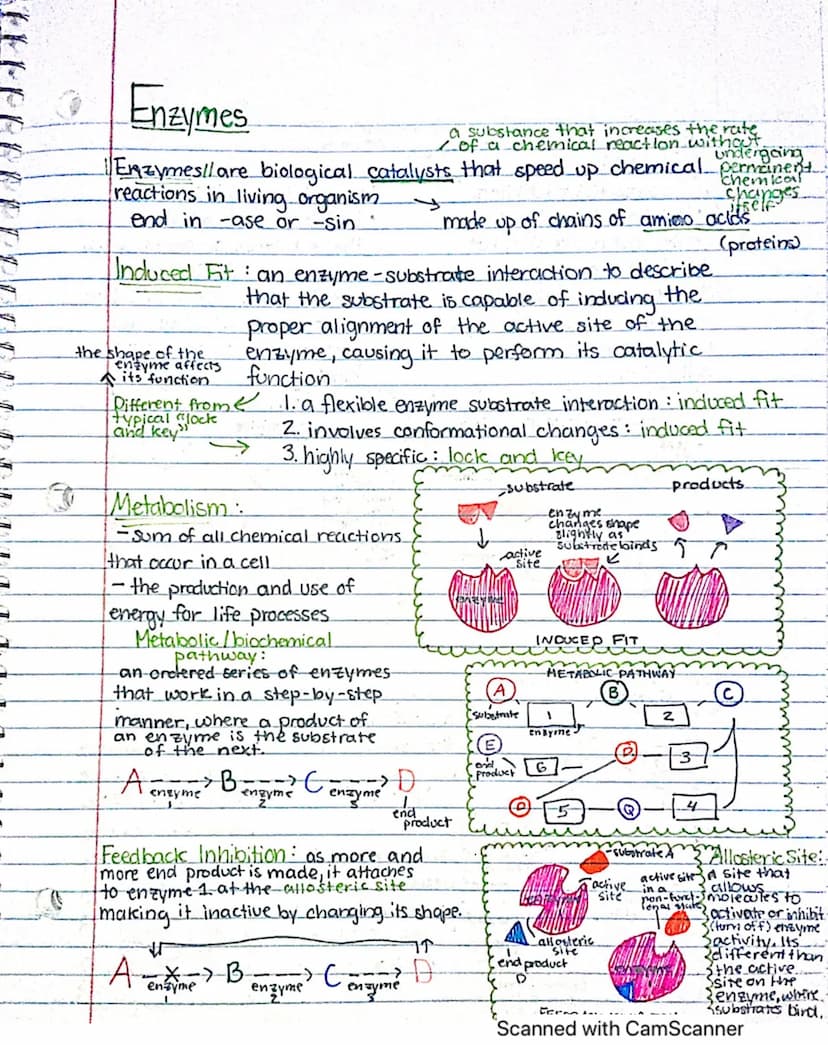 Enzymes
a substance that increases the rate
of a chemical reaction without
undergoing
permanent
chemical
changes
itself
Enzymes are biological catalysts that speed up chemical
reactions in living organism
end in -ase or -sin
made up of chains of amino acids
(proteins)
Induced Fit : an enzyme-substrate interaction to describe
that the substrate is capable of inducing the
proper alignment of the active site of the
enzyme, causing it to perform its catalytic
function
the shape of the
enzyme affects
its function
Different from
typical "lock
and key"
1. a flexible enzyme substrate interaction : induced fit
2. involves conformational changes : induced fit
3. highly specific : lock and key
substrate
products
enzyme
changes shape
slightly as
substrate binds
active
site
enzyme
INDUCED FIT
Metabolism :
- sum of all chemical reactions
that occur in a cell
- the production and use of
energy for life processes
Metabolic/biochemical
pathway :
an ordered series of enzymes
that work in a step-by-step
manner, where a product of
an enzyme is the substrate
of the next.
A ----> B ----> C ----> D
enzyme 1
enzyme 2
enzyme 3
end
product
METABOLIC PATHWAY
A B C
substrate
1 2
enzyme
E
end
product
6 3
5 4
Feedback Inhibition : as more and
more end product is made, it attaches
to enzyme 1 at the allosteric site
making it inactive by changing its shape.
A --x--> B ----> C ----> D
enzyme 1
enzyme 2
enzyme 3
substrate A
active
site
enzyme
allosteric
site
end product
D
active site
in a
enzyme
Allosteric Site :
a site that
allows
molecules to
activate or inhibit
(turn off) enzyme
activity. Its
different than
the active
site on the
enzyme, where
substrates bind.
Scanned with CamScanner